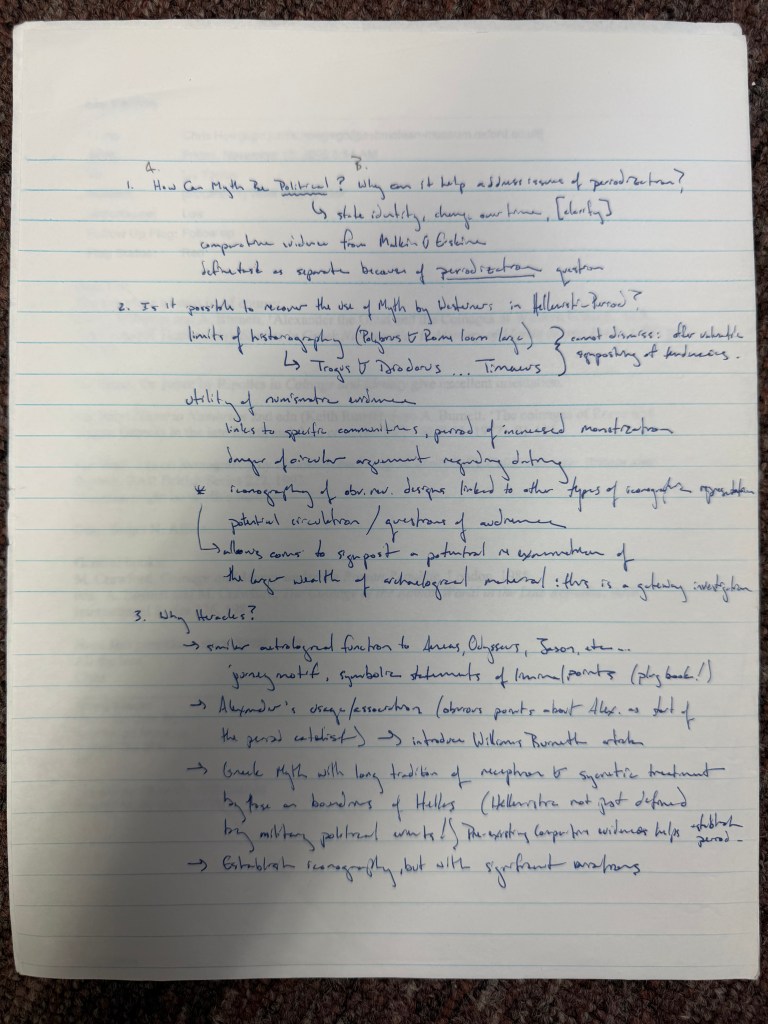 A. B.
1. How Can Myth Be Political? Why can it help address issues of periodization?
↳ state identity, change over time, [clarity]
comparative evidence from Malkin & Erskine
define task as separate because of periodization question
2. Is it possible to recover the use of Myth by Westerners in Hellenistic Period?
limits of historiography (Polybius & Rome loom large) } cannot dismiss: offer valuable
↳ Trogus & Diodorus ... Timaeus } signposting of tendencies.
utility of numismatic evidence
links to specific communities, period of increased monetization
danger of circular argument regarding dating
* iconography of obv. rev. designs linked to other types of iconographic representation
potential circulation / questions of audience
↳ allows coins to signpost a potential re examination of
the larger wealth of archaelogical material: this is a gateway investigation
3. Why Heracles?
→ similar function to Aeneas, Odysseus, Jason, etc...
journey motif, symbolic statements of liminal points (plug book!)
→ Alexander's usage/association (obvious points about Alex. as start of
the period catalist) → introduce Williams Burnett
→ Greek Myth with long tradition of reception & syncretic treatment
by those on boundries of Hellas (Hellenistic not just defined
by military political events!) Pre-existing comparative evidence helps establish
period.
→ Establish iconography, but with significant variations